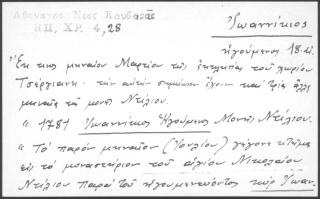 Αθανάτος Νέος Κουβαρᾶς
ΗΠ, ΧΡ. 4, 28
Ἰωαννίκιος
ἡγούμενος 18 αἰ.
"Ἐκ τοῦ μηναίου Μαρτίου τῆς ἐκκλησίας τοῦ χωρίου
Τσέργιανη. τὴν αὐτὴν σημείωσιν ἔχουν καὶ τρία ἄλλα
μηναῖα τῆς μονῆς Ντίλιου.
"1781 Ἰωαννίκιος Ἡγούμενος Μονῆς Ντίλιου.
"Τὸ παρὸν μηναῖον (Ἰουλίου) γέγονε κτῆμα
εἰς τὸ μοναστήριον τοῦ ἁγίου Νικολάου
Ντίλιου παρὰ τοῦ ἡγουμενεύοντος κὺρ Ἰωαν.